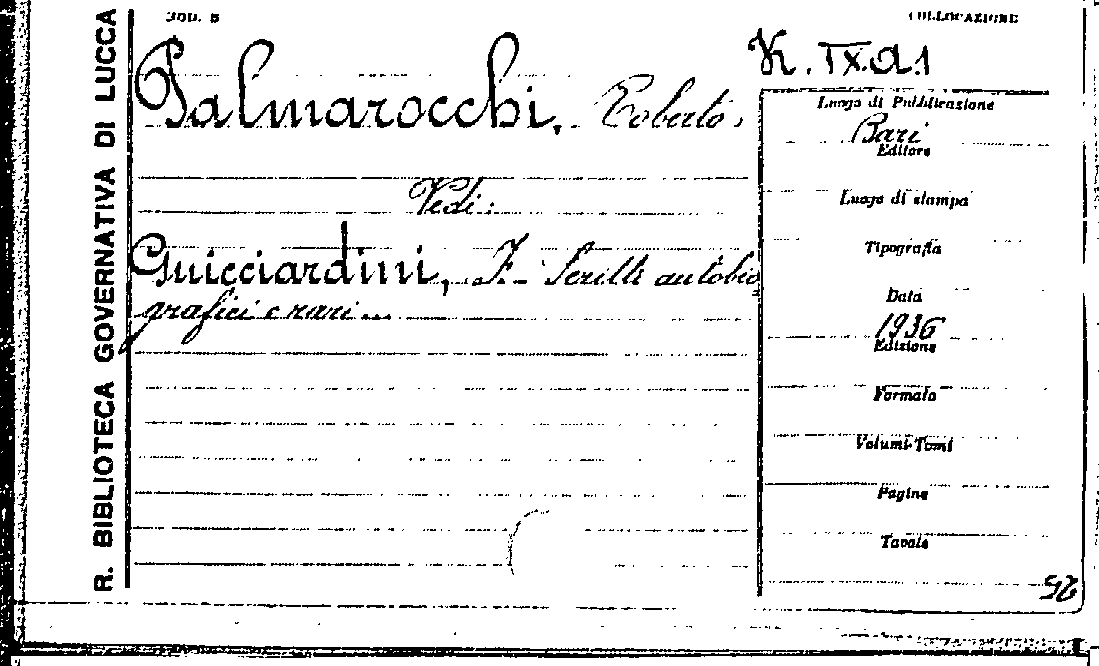 R. BIBLIOTECA GOVERNATIVA DI LUCCA
MOD. 5
COLLOCAZIONE
K. IX.A.1
Palmarocchi, Roberto.
Vedi:
Guicciardini, F. - Scritti autobio=
grafici e rari...
Luogo di Pubblicazione
Bari
Editore
Luogo di stampa
Tipografia
Data
1936
Edizione
Formato
Volumi-Tomi
Pagine
Tavole